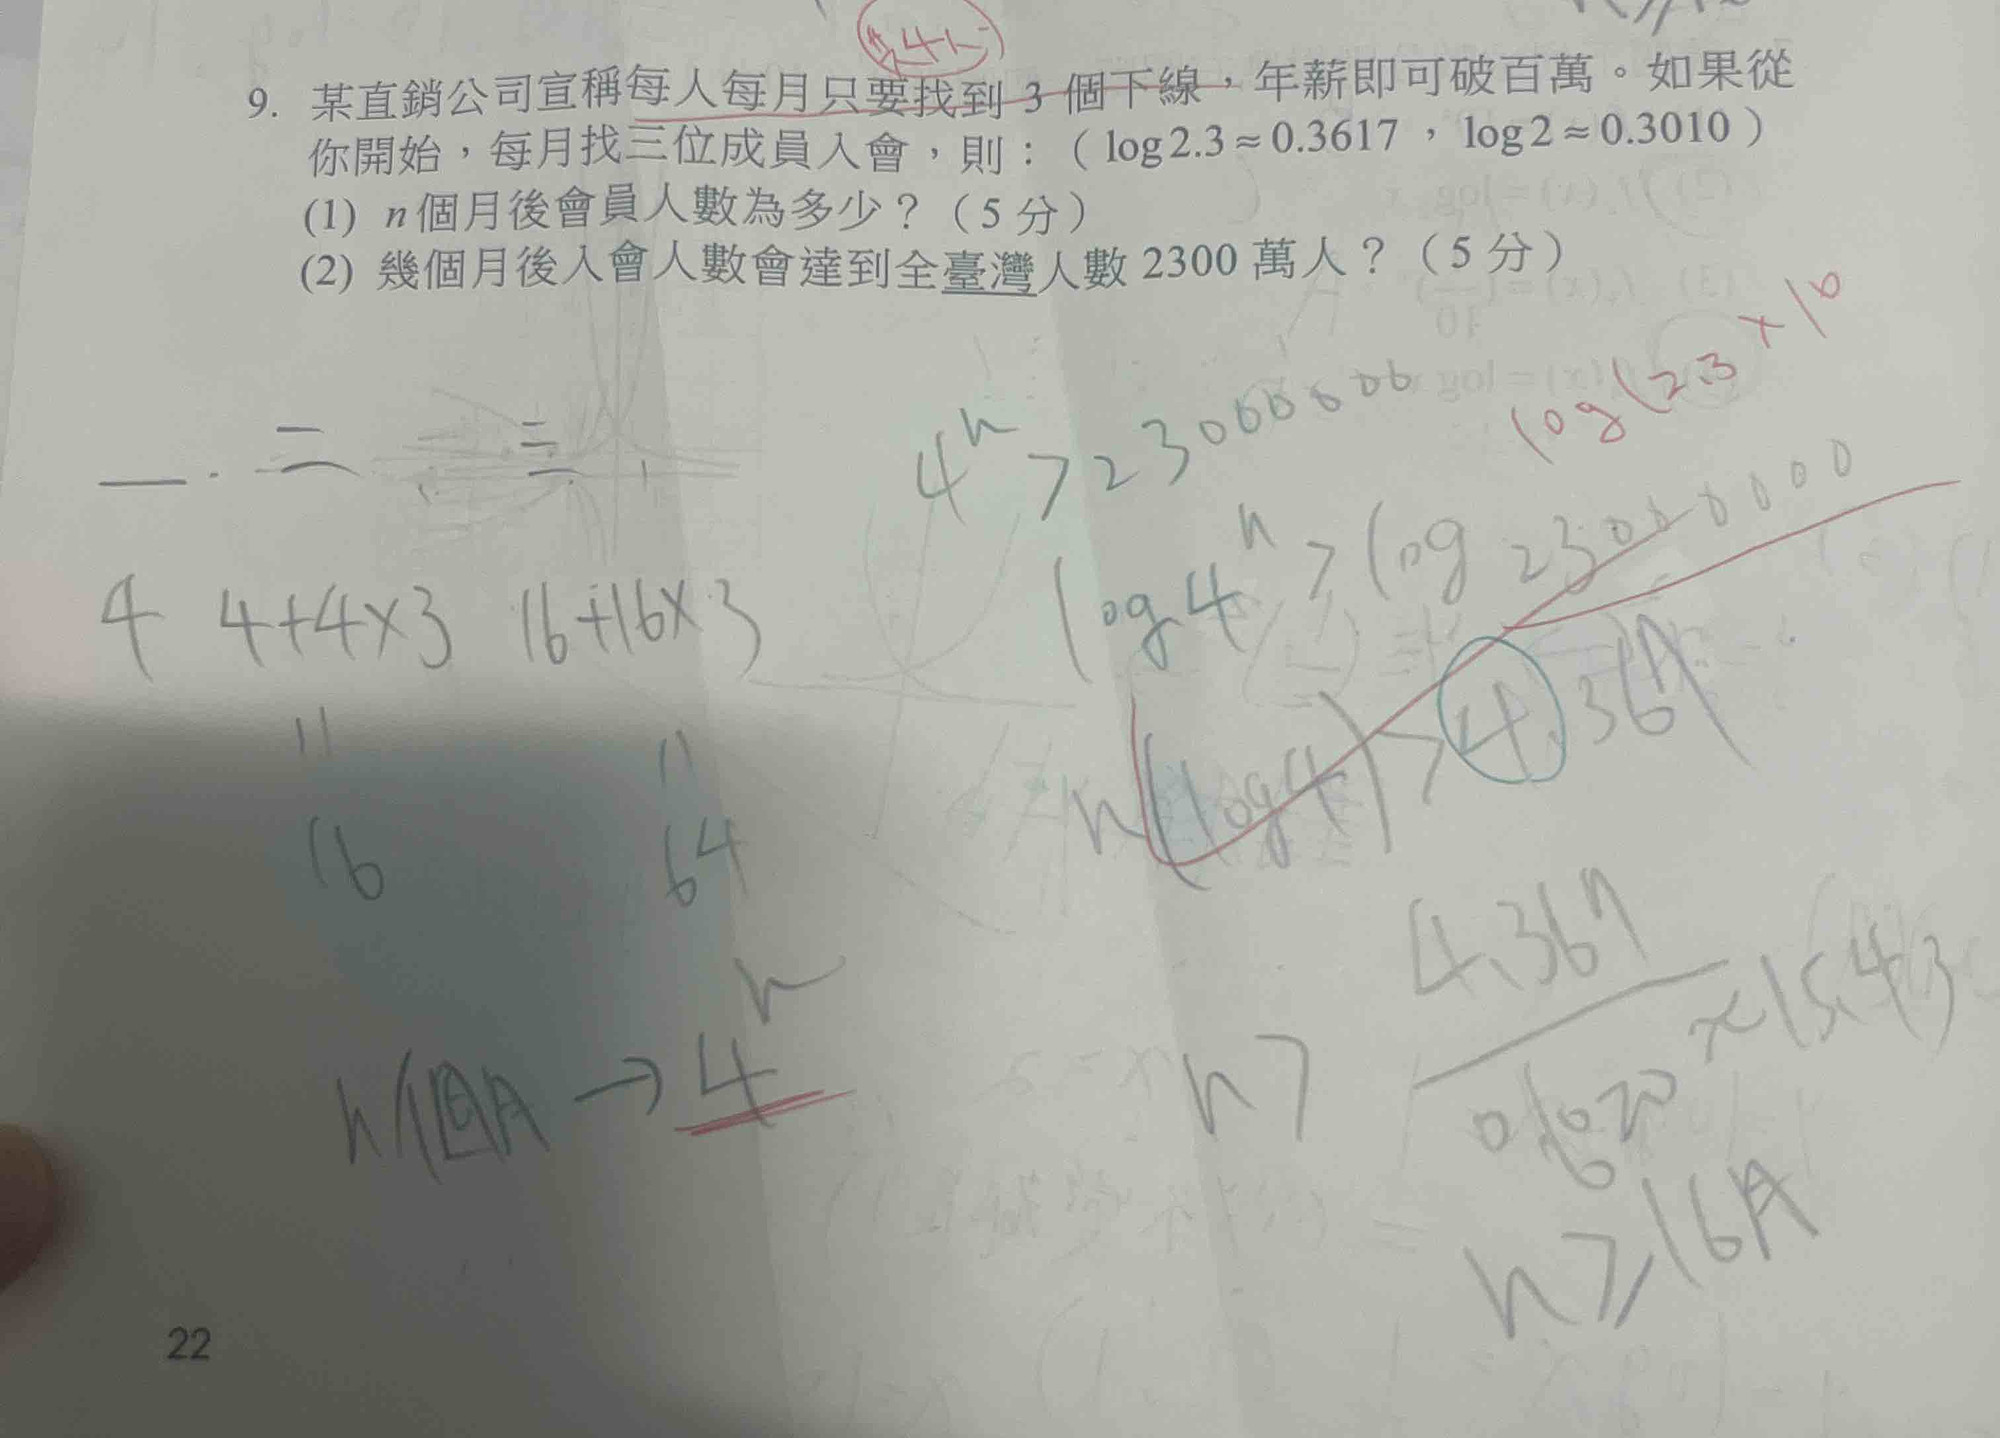 9. 某直銷公司宣稱每人每月只要找到 3 個下線，年薪即可破百萬。如果從
你開始，每月找三位成員入會，則：（log2.3≈0.3617，log2≈0.3010）
(1) n個月後會員人數為多少？（5分）
(2) 幾個月後入會人數會達到全臺灣人數 2300 萬人？（5分）
log(2.3×10
一. 二 三
4ⁿ>23000000
log4ⁿ>log 23000000
4 4+4×3 16+16×3
n(log4)>4.3617
16 64
n> 4.3617
n個月→4ⁿ
n≥16月
22